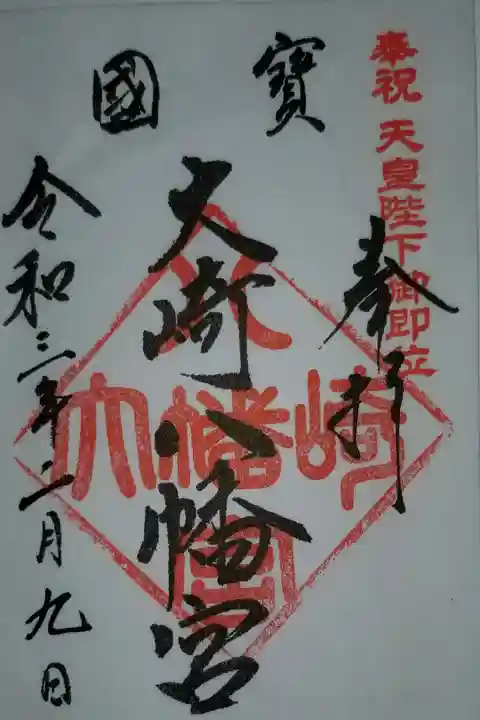 奉祝 天皇陛下御即位
奉拝
寶國
大崎八幡宮
令和三年二月九日
大崎八幡宮